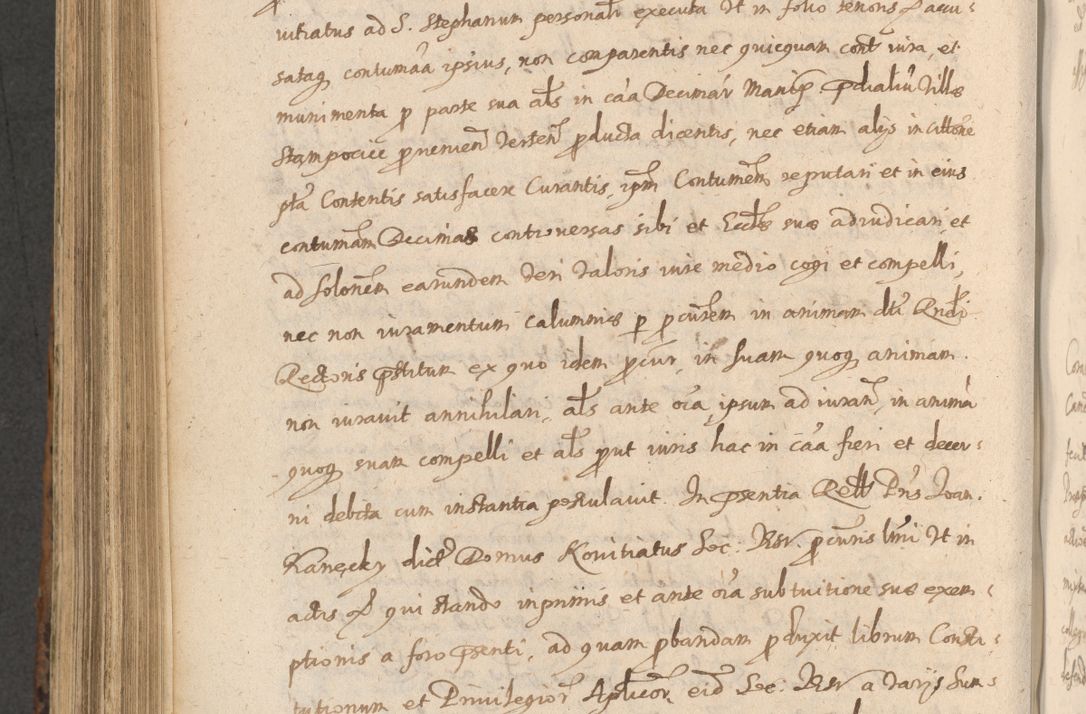 uitiatus ad S. Stephanum personalr executa Vt in folio tenoris & accu-
sataq contumãa ipsius, non comparentis nec quicquam contr iura, et
munimenta p parte sua als in caa Decimar Manip pdialiu Villæ
Stampocice proueniens Verten producta dicentis, nec etiam alijs in cittone
pta Contentis satisfacere Curantis, ipm Contumem reputari et in eius
contumam Decimas controuersas sibi et Eccltæ suæ adiudicari, et
ad solonem earundem Veri Valoris iure medio cogi et compelli,
nec non iuramentum calumniæ p pcurem in animam dti Rndi
Rectoris pstitum ex quo idem pcur, in suam quoq animam
non iurauit annihilari, als ante oia ipsum ad iuran, in anima
quoq suam compelli et als prout iuris hac in caa fieri et decer-
ni debita cum instantia postulauit. In psentia Rell Dni Joan.
Kanęcky dict Domus Nouitiatus Soc: Jesu pcuris ltmi Vt in
actis & qui stando inprimis et ante oia sub tuitione suæ exem-
ptionis a foro psenti, ad quam pbandam pduxit librum Consti-
tutionum et Priuilegior Aplicor, eid Soc: Jesu a Varijs Sum-